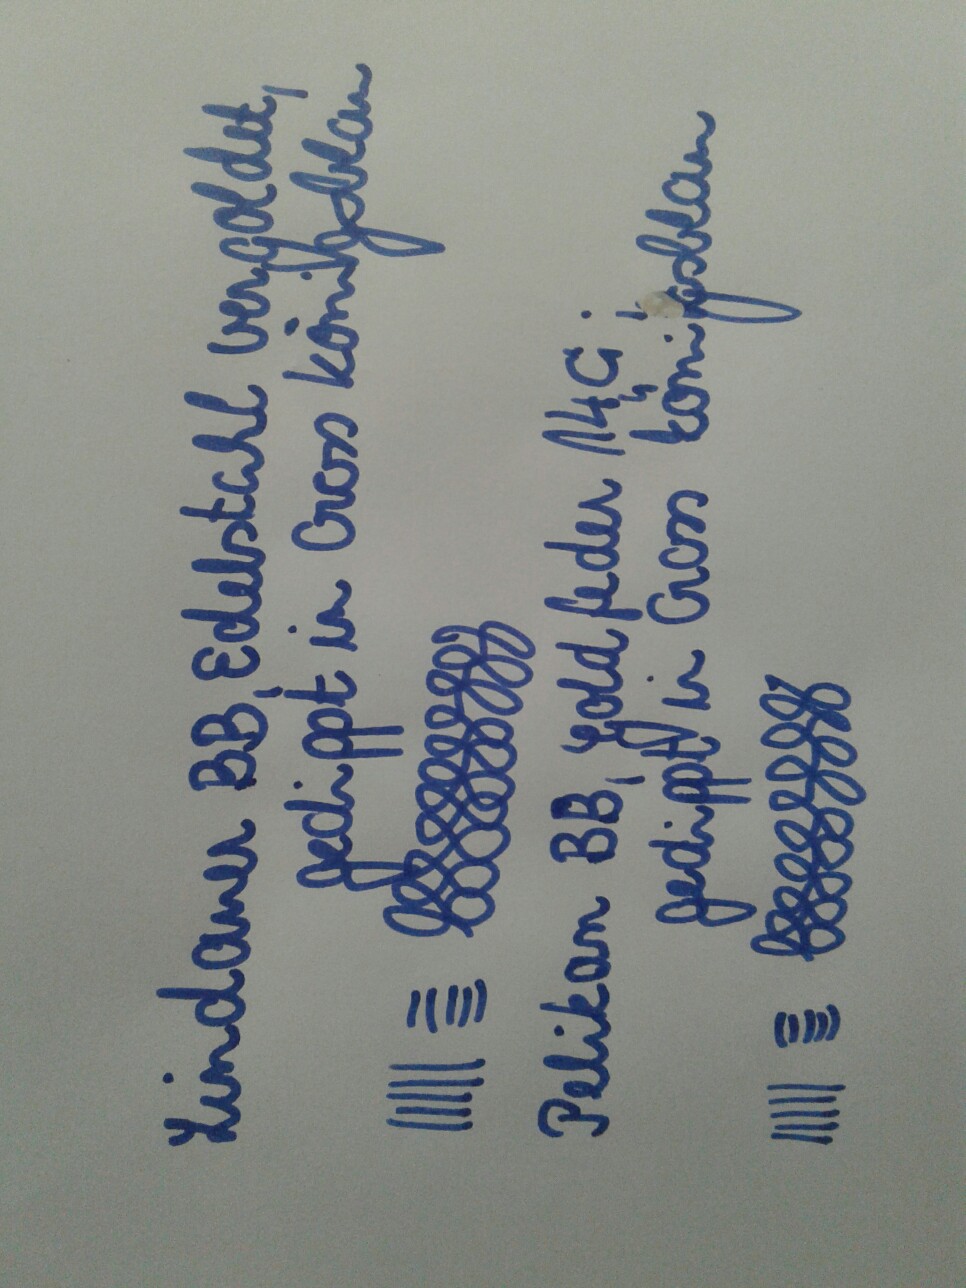 Lindauer BB, Edelstahl vergoldet,
gedippt in Cross königsblau
Pelikan BB, Goldfeder 14C;
gedippt in Cross königsblau